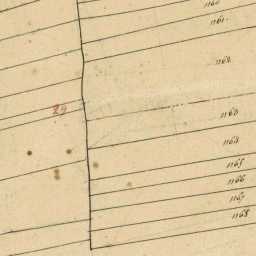 1160
1161
1162
29
1163
1164
1165
1166
1167
1168